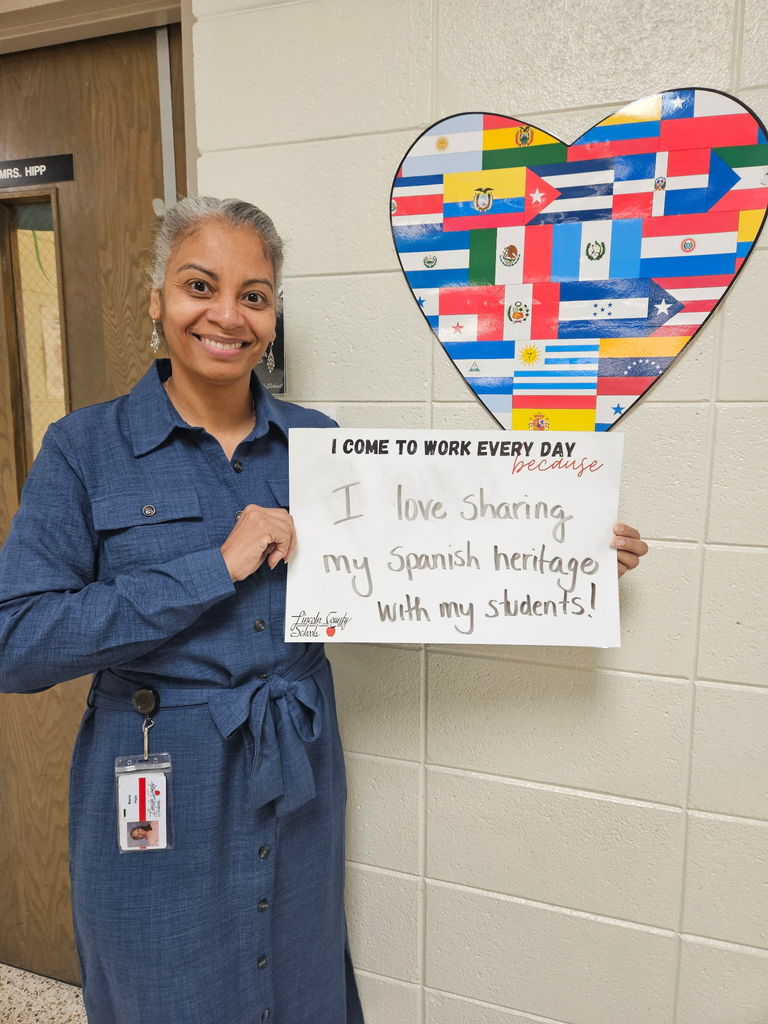 MRS. HIPP
I COME TO WORK EVERY DAY
because
I love sharing
my Spanish heritage
with my students!
Lincoln County
Schools